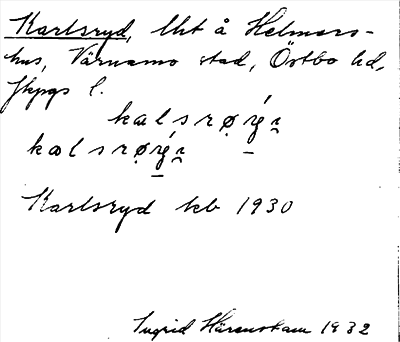 Karlsryd, lht å Helmers-
hus, Värnamo stad, Östbo hd,
Jkpgs l.
kalsrø
kalsrø
Karlsryd kb 1930
Ingrid Härenstam 1932